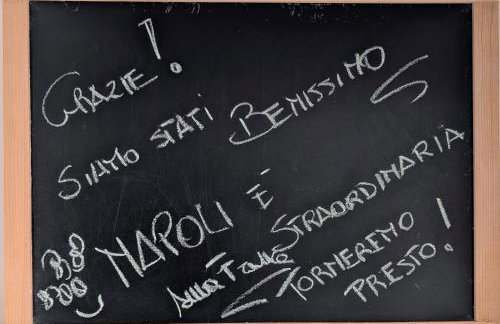 GRAZIE!
SIAMO STATI BENISSIMO
NAPOLI È STRAORDINARIA
TORNEREMO
PRESTO!